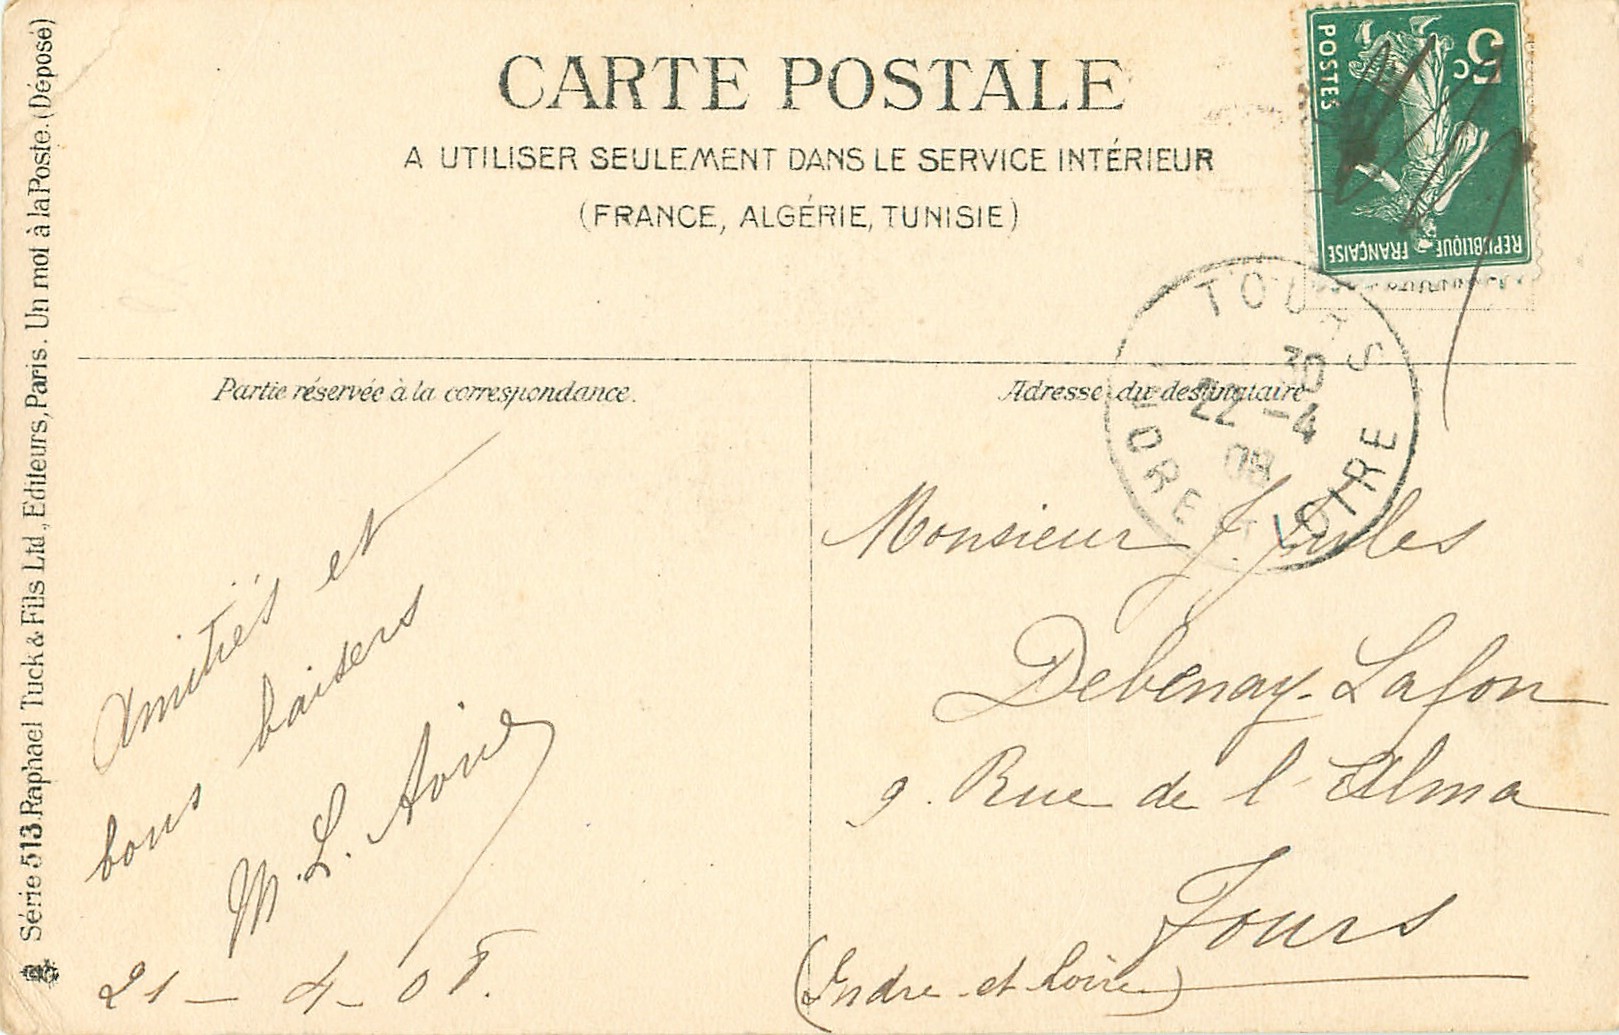 CARTE POSTALE
A UTILISER SEULEMENT DANS LE SERVICE INTÉRIEUR
(FRANCE, ALGÉRIE, TUNISIE)
5c
POSTES
REPUBLIQUE FRANÇAISE
TOURS
30
22 -4
08
INDRE ET LOIRE
Partie réservée à la correspondance.
Adresse du destinataire
Amitiés et
bons baisers
M. L.
21 - 4 - 08.
Monsieur J. Jules
Debenay-Lafon
9. Rue de l'Alma
Tours
(Indre-et-Loire)
Série 513. Raphael Tuck & Fils Ltd., Editeurs, Paris. Un mot à la Poste. (Déposé)